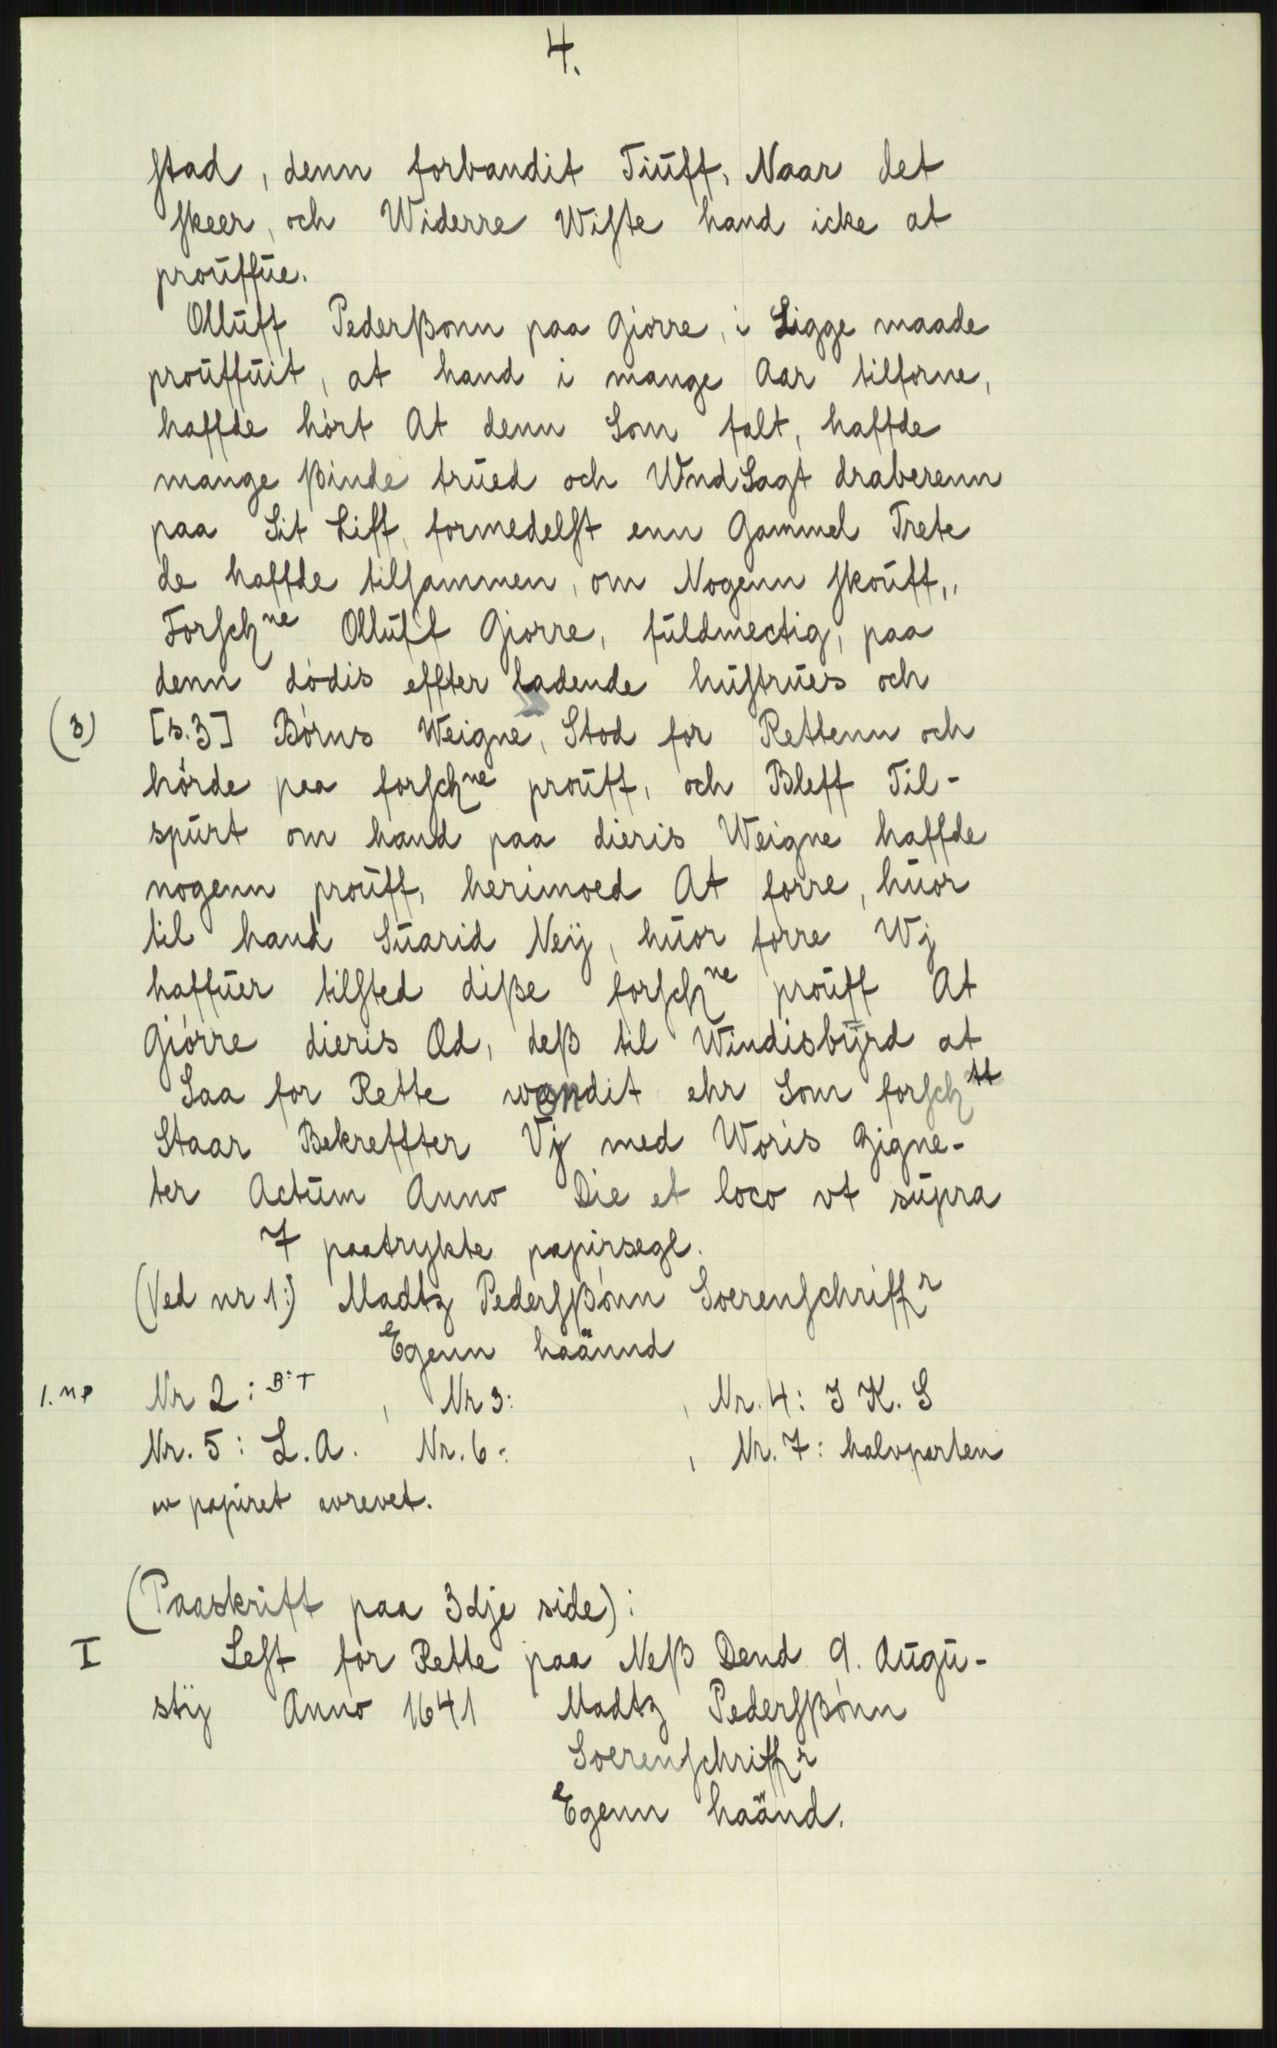 4.
stad, denn forbandit Tiuff, Naar det
skeer, och Widerre Wiste hand icke at
prouffue.
Olluff Pederßonn paa Giorre, i Ligge maade
prouffuit, at hand i mange Aar tilforne,
haffde hørt At denn Som falt, haffde
mange ßinde trued och WndSagt draberenn
paa Sit Liff, formedelst enn Gammel Trete
de haffde tilsammen, om Nogenn skouff,,
Forschne Olluff Giorre, fuldmectig, paa
denn dødis effter ladende hustrues och
(3) [s.3] Børns Weigne, Stod for Rettenn och
hørde paa forschne prouff, och Bleff Til-
spurt om hand paa dieris Weigne haffde
nogenn prouff, herimoed At forre, huor
til hand Suarid Neij, huor forre Wj
haffuer tilsted diße forschne prouff At
Giørre dieris Æd, deß til Windisbyrd at
Saa for Rette wondit ehr Som forschtt
Staar Bekreffter Vj med Woris Zigne-
ter Actum Anno Die et loco vt supra
7 paatrykte papirsegl.
(Ved nr 1:) Madtz Pedersßønn Soerenschriffr
Egenn haännd
1. np Nr 2: B:T , Nr 3: , Nr. 4: J K. S
Nr. 5: L.A. Nr. 6: , Nr. 7: halvparten
av papiret avrevet.
(Paaskrift paa 3dje side):
I Lest for Rette paa Neß Dend 9. Augu-
stij Anno 1641 Madtz Pedersßønn
Soerenschriffr
Egenn haänd.